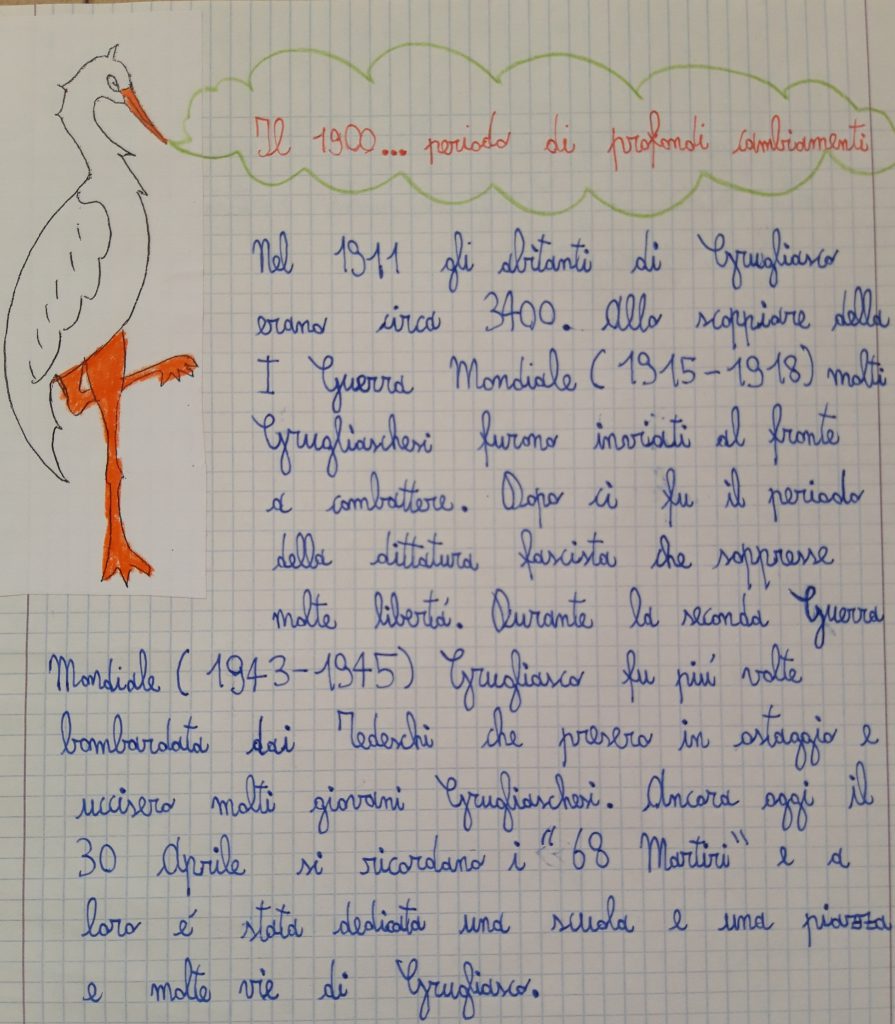 Il 1900... periodo di profondi cambiamenti
Nel 1911 gli abitanti di Grugliasco
erano circa 3400. Allo scoppiare della
I Guerra Mondiale (1915-1918) molti
Grugliaschesi furono inviati al fronte
a combattere. Dopo ci fu il periodo
della dittatura fascista che soppresse
molte libertá. Durante la seconda Guerra
Mondiale (1943-1945) Grugliasco fu piú volte
bombardata dai Tedeschi che presero in ostaggio e
uccisero molti giovani Grugliaschesi. Ancora oggi il
30 Aprile si ricordano i "68 Martiri" e a
loro é stata dedicata una scuola e una piazza
e molte vie di Grugliasco.